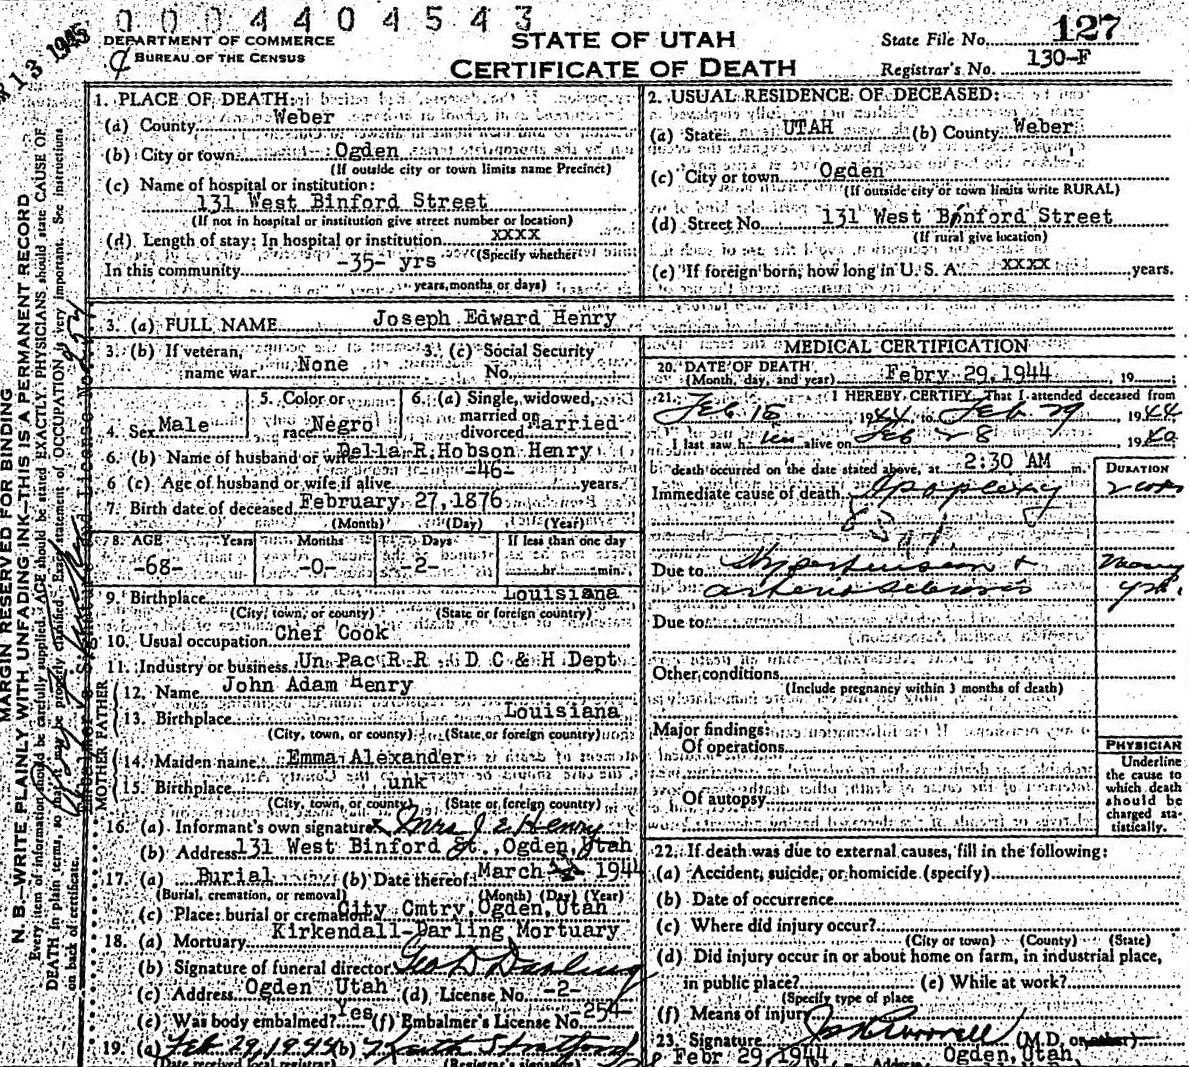 0004404543
127
DEPARTMENT OF COMMERCE
BUREAU OF THE CENSUS
STATE OF UTAH
CERTIFICATE OF DEATH
State File No.
Registrar's No. 130-F
13 1945
1. PLACE OF DEATH:
(a) County Weber
(b) City or town Ogden
(If outside city or town limits name Precinct)
(c) Name of hospital or institution:
131 West Binford Street
(If not in hospital or institution give street number or location)
(d) Length of stay: In hospital or institution xxxx
(Specify whether
In this community -35- yrs
years, months or days)
2. USUAL RESIDENCE OF DECEASED:
(a) State UTAH (b) County Weber
(c) City or town Ogden
(If outside city or town limits write RURAL)
(d) Street No. 131 West Binford Street
(If rural give location)
(e) If foreign born, how long in U. S. A. xxxx years.
3. (a) FULL NAME Joseph Edward Henry
3. (b) If veteran, name war None
3. (c) Social Security No.
4. Sex Male
5. Color or race Negro
6. (a) Single, widowed, married or divorced Married
6. (b) Name of husband or wife Della R. Hobson Henry
6 (c) Age of husband or wife if alive -46- years.
7. Birth date of deceased February 27, 1876
(Month) (Day) (Year)
8. AGE Years Months Days If less than one day
-68- -0- -2- hr. min.
9. Birthplace Louisiana
(City, town, or county) (State or foreign country)
10. Usual occupation Chef Cook
11. Industry or business Un Pac R R D C & H Dept
FATHER
12. Name John Adam Henry
13. Birthplace Louisiana
(City, town, or county) (State or foreign country)
MOTHER
14. Maiden name Emma Alexander
15. Birthplace unk
(City, town, or county) (State or foreign country)
16. (a) Informant's own signature x Mrs J E Henry
(b) Address 131 West Binford St., Ogden, Utah
17. (a) Burial (b) Date thereof March 1944
(Burial, cremation, or removal) (Month) (Day) (Year)
(c) Place: burial or cremation City Cmtry, Ogden, Utah
18. (a) Mortuary Kirkendall-Darling Mortuary
(b) Signature of funeral director Geo D Darling
(c) Address Ogden Utah (d) License No. -2-
(e) Was body embalmed? Yes (f) Embalmer's License No. -254-
19. (a) Feb 29, 1944 (b) Keith Stratford
(Date received local registrar) (Registrar's signature)
MEDICAL CERTIFICATION
20. DATE OF DEATH
(Month, day, and year) Febry 29, 1944, 19
21. I HEREBY CERTIFY, That I attended deceased from
Feb 15 1944 to Feb 29, 1944
I last saw him alive on Feb 28 1940
death occurred on the date stated above, at 2:30 AM m.
DURATION
Immediate cause of death Apoplexy
Due to Hypertension + Many
arteriosclerosis yrs.
Due to
Other conditions
(Include pregnancy within 3 months of death)
Major findings:
Of operations
Of autopsy
PHYSICIAN
Underline
the cause to
which death
should be
charged sta-
tistically.
22. If death was due to external causes, fill in the following:
(a) Accident, suicide, or homicide (specify)
(b) Date of occurrence
(c) Where did injury occur?
(City or town) (County) (State)
(d) Did injury occur in or about home on farm, in industrial place,
in public place? (e) While at work?
(Specify type of place
(f) Means of injury
23. Signature (M.D. or other)
Febr 29, 1944 Address Ogden, Utah
MARGIN RESERVED FOR BINDING
N. B.—WRITE PLAINLY, WITH UNFADING INK—THIS IS A PERMANENT RECORD
Every item of information should be carefully supplied. AGE should be stated EXACTLY. PHYSICIANS should state CAUSE OF
DEATH in plain terms, so that it may be properly classified. Exact statement of OCCUPATION is very important. See instructions
on back of certificate.